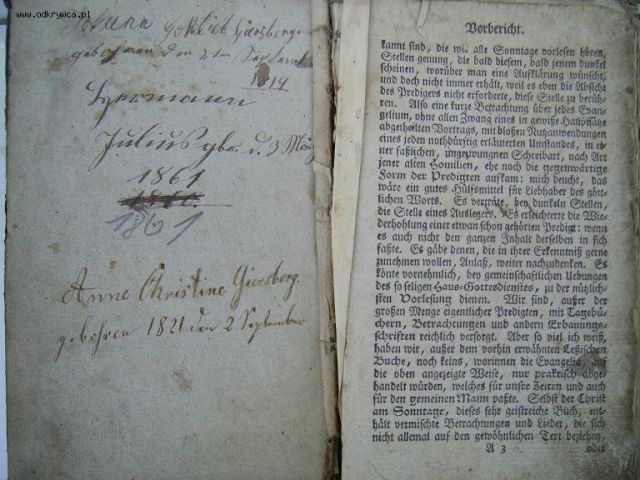 www.odkrywca.pl
Johann Gottlieb Giersberg
gebohren den 2ten September
1819
Hermann
Julius gbr. d. 3 May
1861
1861
Anne Christine Giersberg
gebohren 1821 den 2 September
Vorbericht.
kannt sind, die wir alle Sonntage vorlesen hören,
Stellen genung, die bald diesem, bald jenem dunkel
scheinen, worüber man eine Aufklärung wünscht,
und doch nicht immer erhält, weil es eben die Absicht
des Predigers nicht erforderte, diese Stelle zu berüh-
ren. Also eine kurze Betrachtung über jedes Evan-
gelium, ohne allen Zwang eines in gewiße Hauptsätze
abgetheilten Vortrags, mit bloßen Nutzanwendungen
eines jeden nothdürftig erläuterten Umstandes, in ei-
ner faßlichen, ungezwungnen Schreibart, nach Art
jener alten Homilien, ehe noch die gegenwärtige
Form der Predigten aufkam: mich deucht, das
wäre ein gutes Hülfsmittel für Liebhaber des gött-
lichen Worts. Es verträte, bey dunkeln Stellen,
die Stelle eines Auslegers. Es erleichterte die Wie-
derhohlung einer etwan schon gehörten Predigt: wenn
es auch nicht den ganzen Inhalt derselben in sich
faßte. Es gäbe denen, die in ihrer Erkenntniß gerne
zunehmen wollen, Anlaß, weiter nachzudenken. Es
könte vornehmlich, bey gemeinschaftlichen Uebungen
des so seligen Haus-Gottesdienstes, zu der nützlich-
sten Vorlesung dienen. Wir sind, außer der
großen Menge eigentlicher Predigten, mit Tagebü-
chern, Betrachtungen und andern Erbauungs-
schriften reichlich versorgt. Aber so viel ich weiß,
haben wir, außer dem vorhin erwähnten Leßischen
Buche, noch keins, worinnen die Evangelia, auf
die oben angezeigte Weise, nur praktisch abge-
handelt würden, welches für unsre Zeiten und auch
für den gemeinen Mann paßte. Selbst der Christ
am Sonntage, dieses sehr geistreiche Buch, ent-
hält vermischte Betrachtungen und Lieder, die sich
nicht allemal auf den gewöhnlichen Text beziehen,
A 3 oder